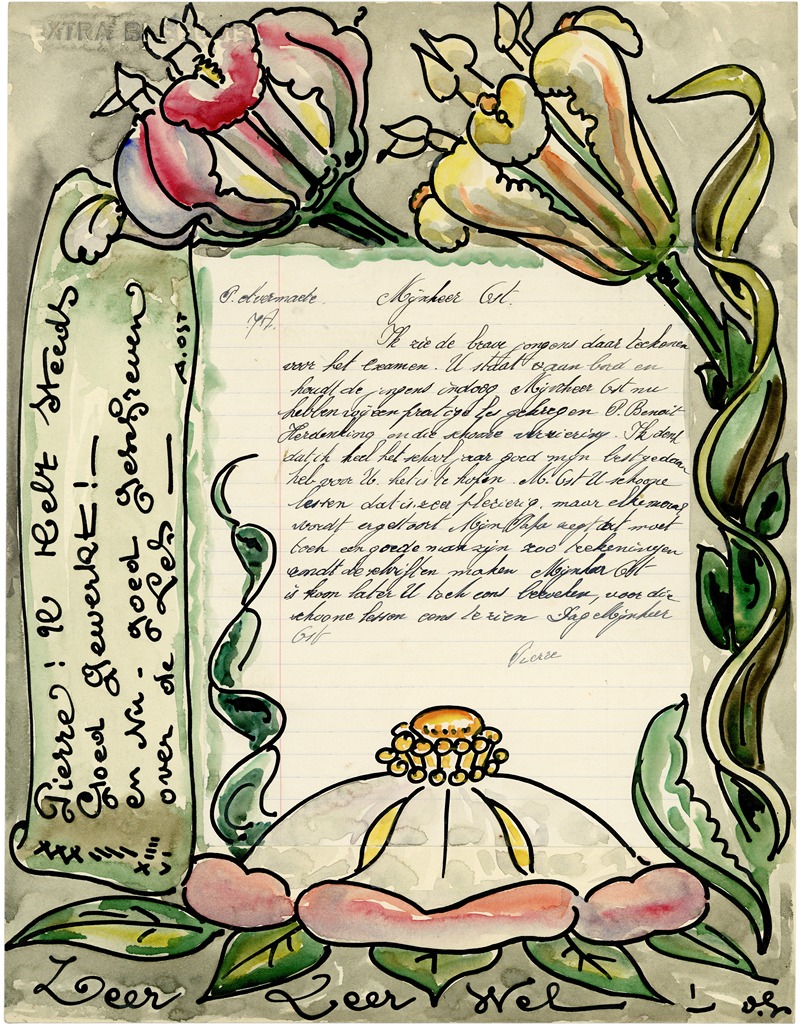 EXTRA
P. Overmaete.
7A.
Mijnheer Ost.
Ik zie de brave jongens daar teekenen
voor het examen. U staat aan bord en
houdt de jongens Mijnheer Ost nu
hebben wij een prachtige les gekregen P. Benoit
Herdenking en die schoone versiering. Ik denk
dat ik heel het schooljaar goed mijn best gedaan
heb voor U. het is te hopen. M. Ost U schoone
lessen dat is zeer plezierig, maar
wordt Mijn Papa zegt dat moet
toch een goede man zijn zoo teekeningen
rondt de schriften maken Mijnheer Ost
is kom later U toch eens bezoeken, voor die
schoone lessen eens te zien Dag Mijnheer
Ost
Pierre
Pierre! Ik Hebt Steeds
Goed Gewerkt!—
en Nu- goed Geschreven
over de Les —
A. OST
XXX IIII
XIIII
VI
Zeer Zeer Wel !